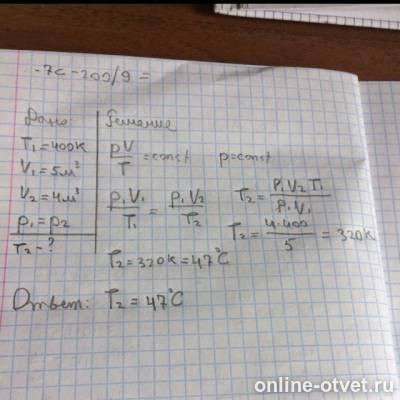 -7c -200/9 =
Дано: Решение
T₁=400K
V₁=5м³
V₂=4м³
p₁=p₂
T₂-?
pV/T = const p=const
p₁V₁/T₁ = p₁V₂/T₂ T₂ = p₁V₂T₁/p₁V₁
T₂ = 4·400/5 = 320K
T₂=320K=47°C
Ответ: T₂=47°C
online-otvet.ru